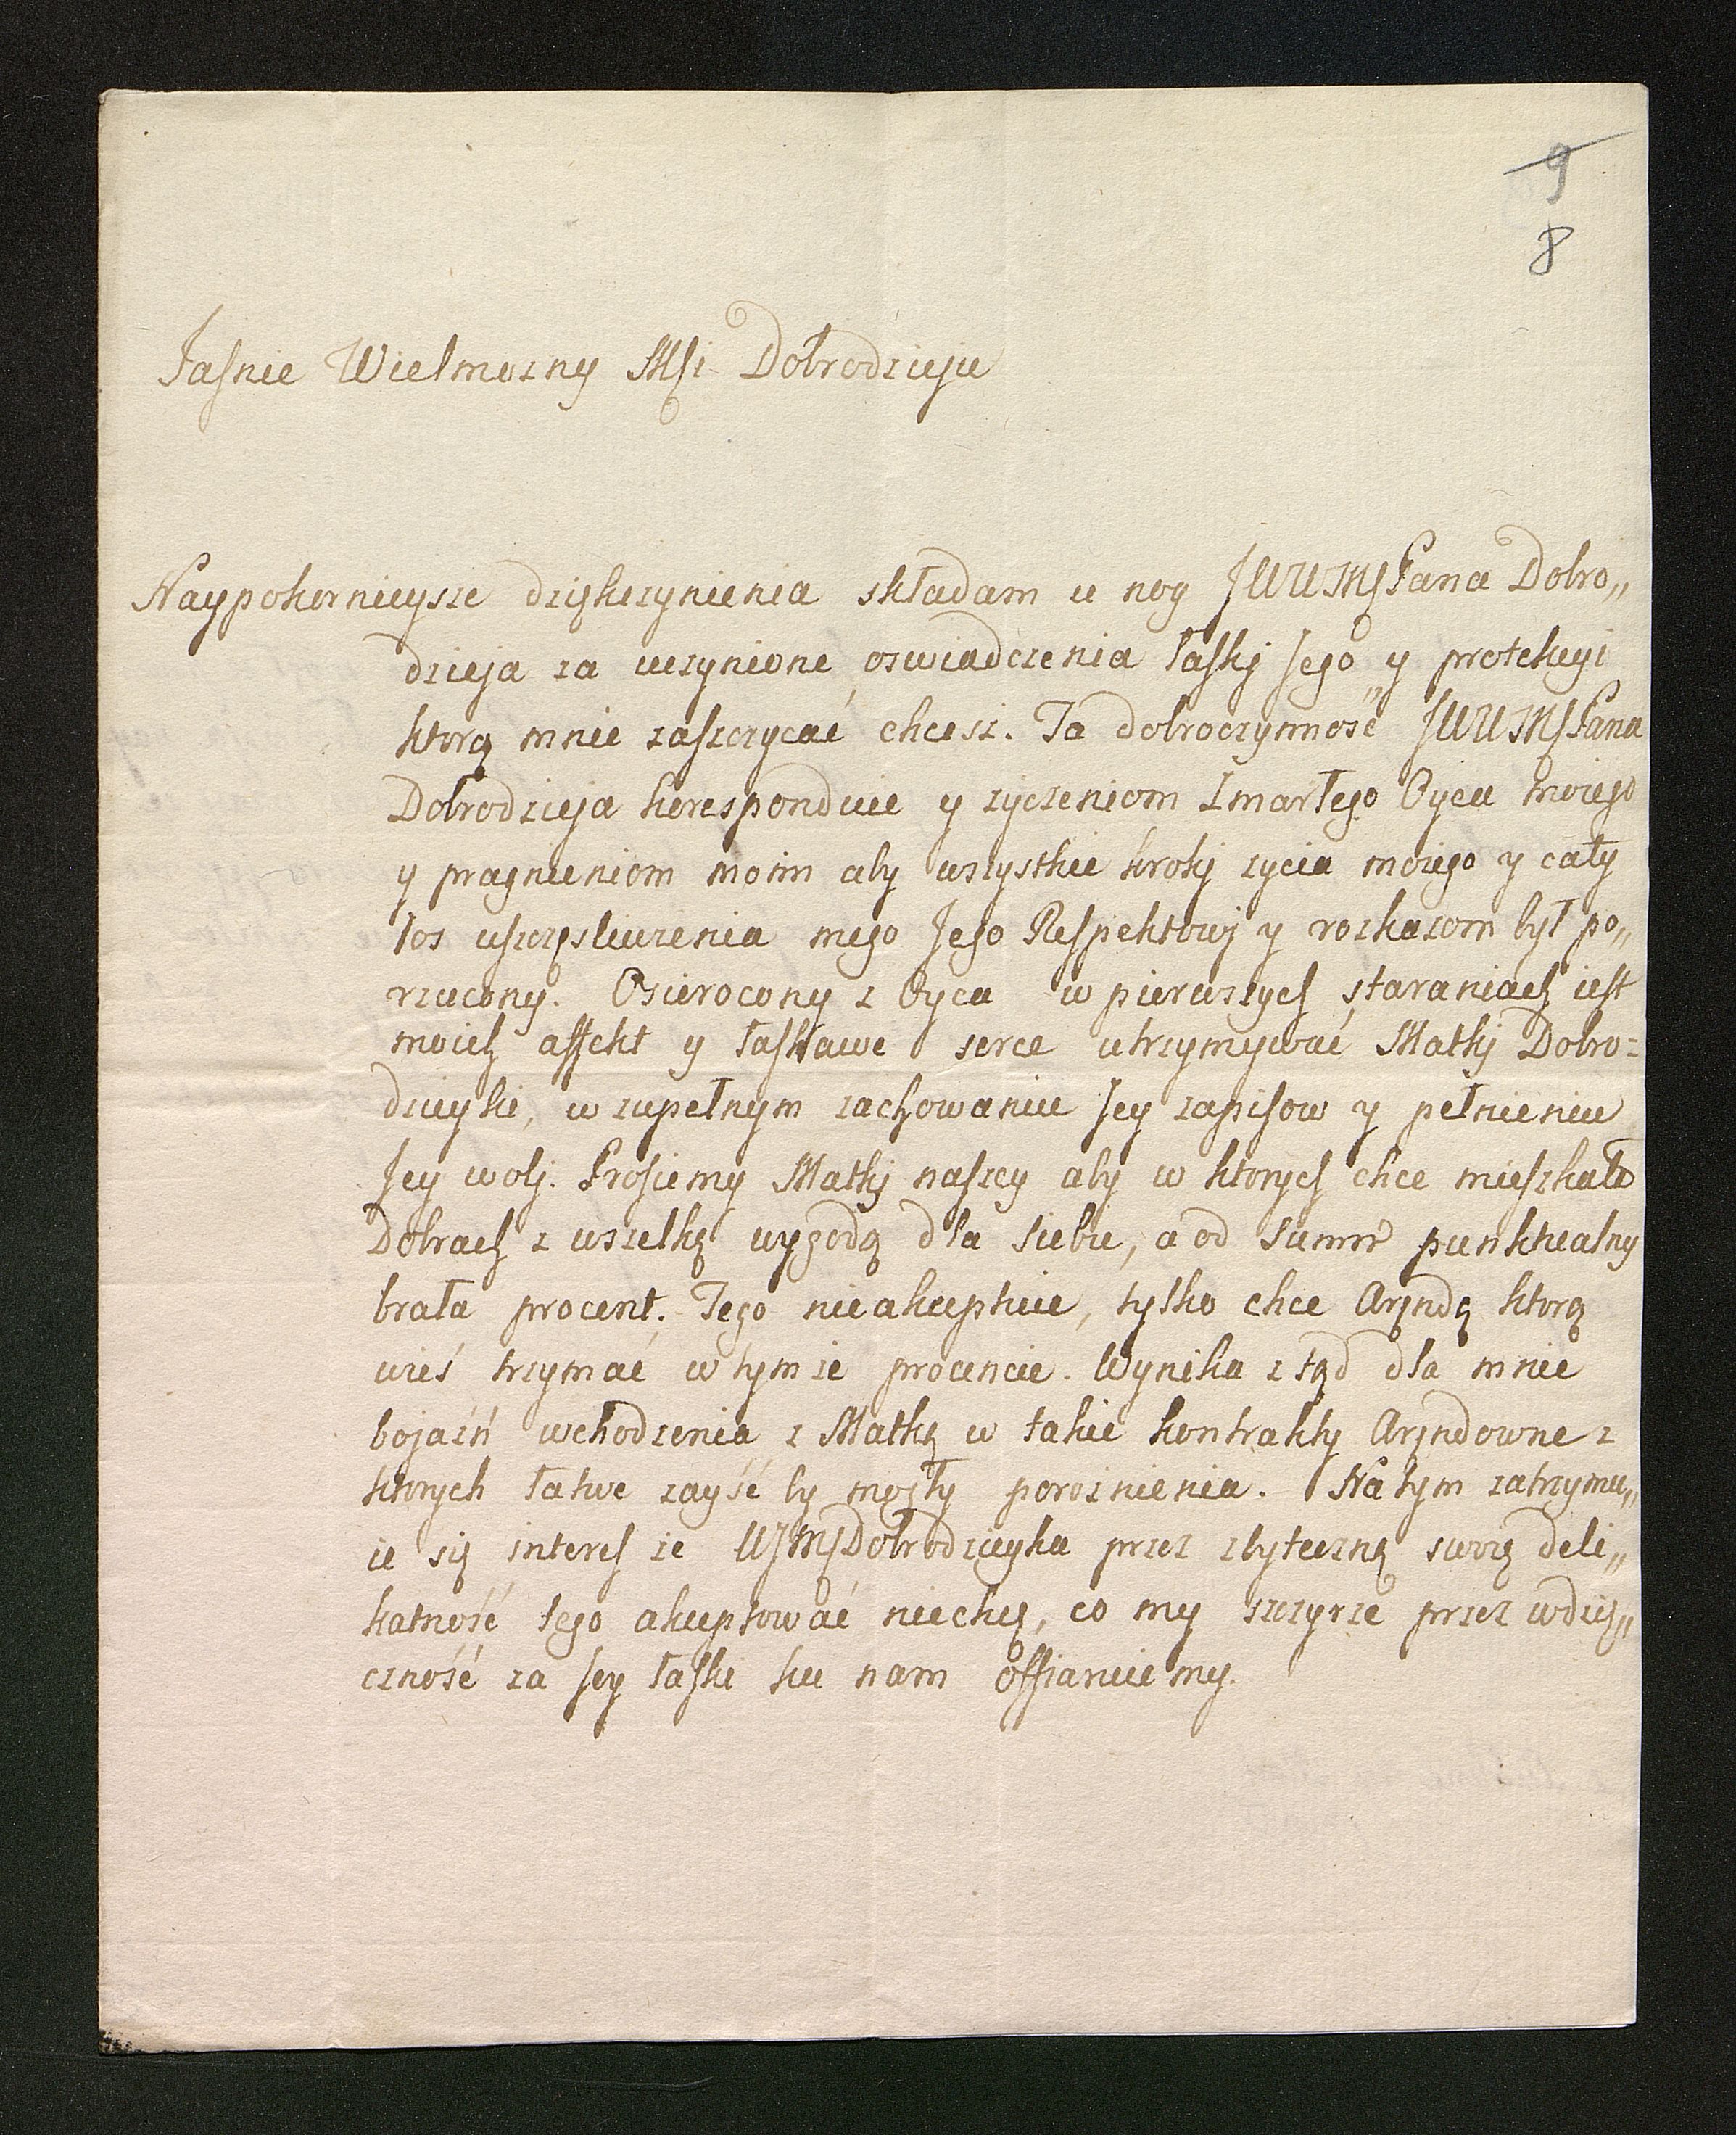 9
8
Jaśnie Wielmozny Msi Dobrodzieju
Naypokornieysze dziękczynienia składam u nog JWWMsPana Dobro„
dzieja za uczynione oswiadczenia łaskj Jego y protekcyi
ktorą mnie zaszczycać chcesz. Ta dobroczynność JWWMsPana
Dobrodzieja koresponduie y zyczeniom Zmarłego Oyca moiego
y pragnieniom moim aby wszystkie krokj zycia moiego y cały
los uszczęsliwienia mego Jego Respektowj y rozkazom był po„
rzucony. Osierocony z Oyca w pierwszych staraniach iest
moich affekt y łaskawe serce utrzymywać Matkj Dobro=
dzieyki, w zupełnym zachowaniu Jey zapisow y pełnieniu
Jey wolj. Prosiemy Matkj naszey aby w ktorych chce mieszkała
Dobrach z wszelką wygodą dla siebie, a od Summ punktualny
brała procent. Tego nieakceptuie, tylko chce Arędą ktorą
wieś trzymać w tymze procencie. Wynika ztąd dla mnie
bojaźń wchodzenia z Matką w takie kontrakty Arędowne z
ktorych łatwe zayść by mogły poroznienia. Na tym zatrzymu„
ie się interes ze WJMsDobrodzieyka przez zbyteczną swoią deli„
katność tego akceptować niechcę, co my szczyrze przez wdzię„
czność za Jey łaski ku nam offiaruiemy.